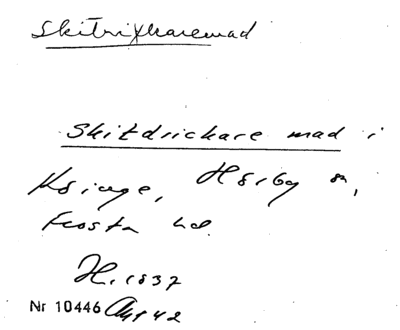 Skitrixkaremad
Skitdrickare mad i
Köinge, Hörby sn,
Frosta hd.
H. 1837
Nr 10446